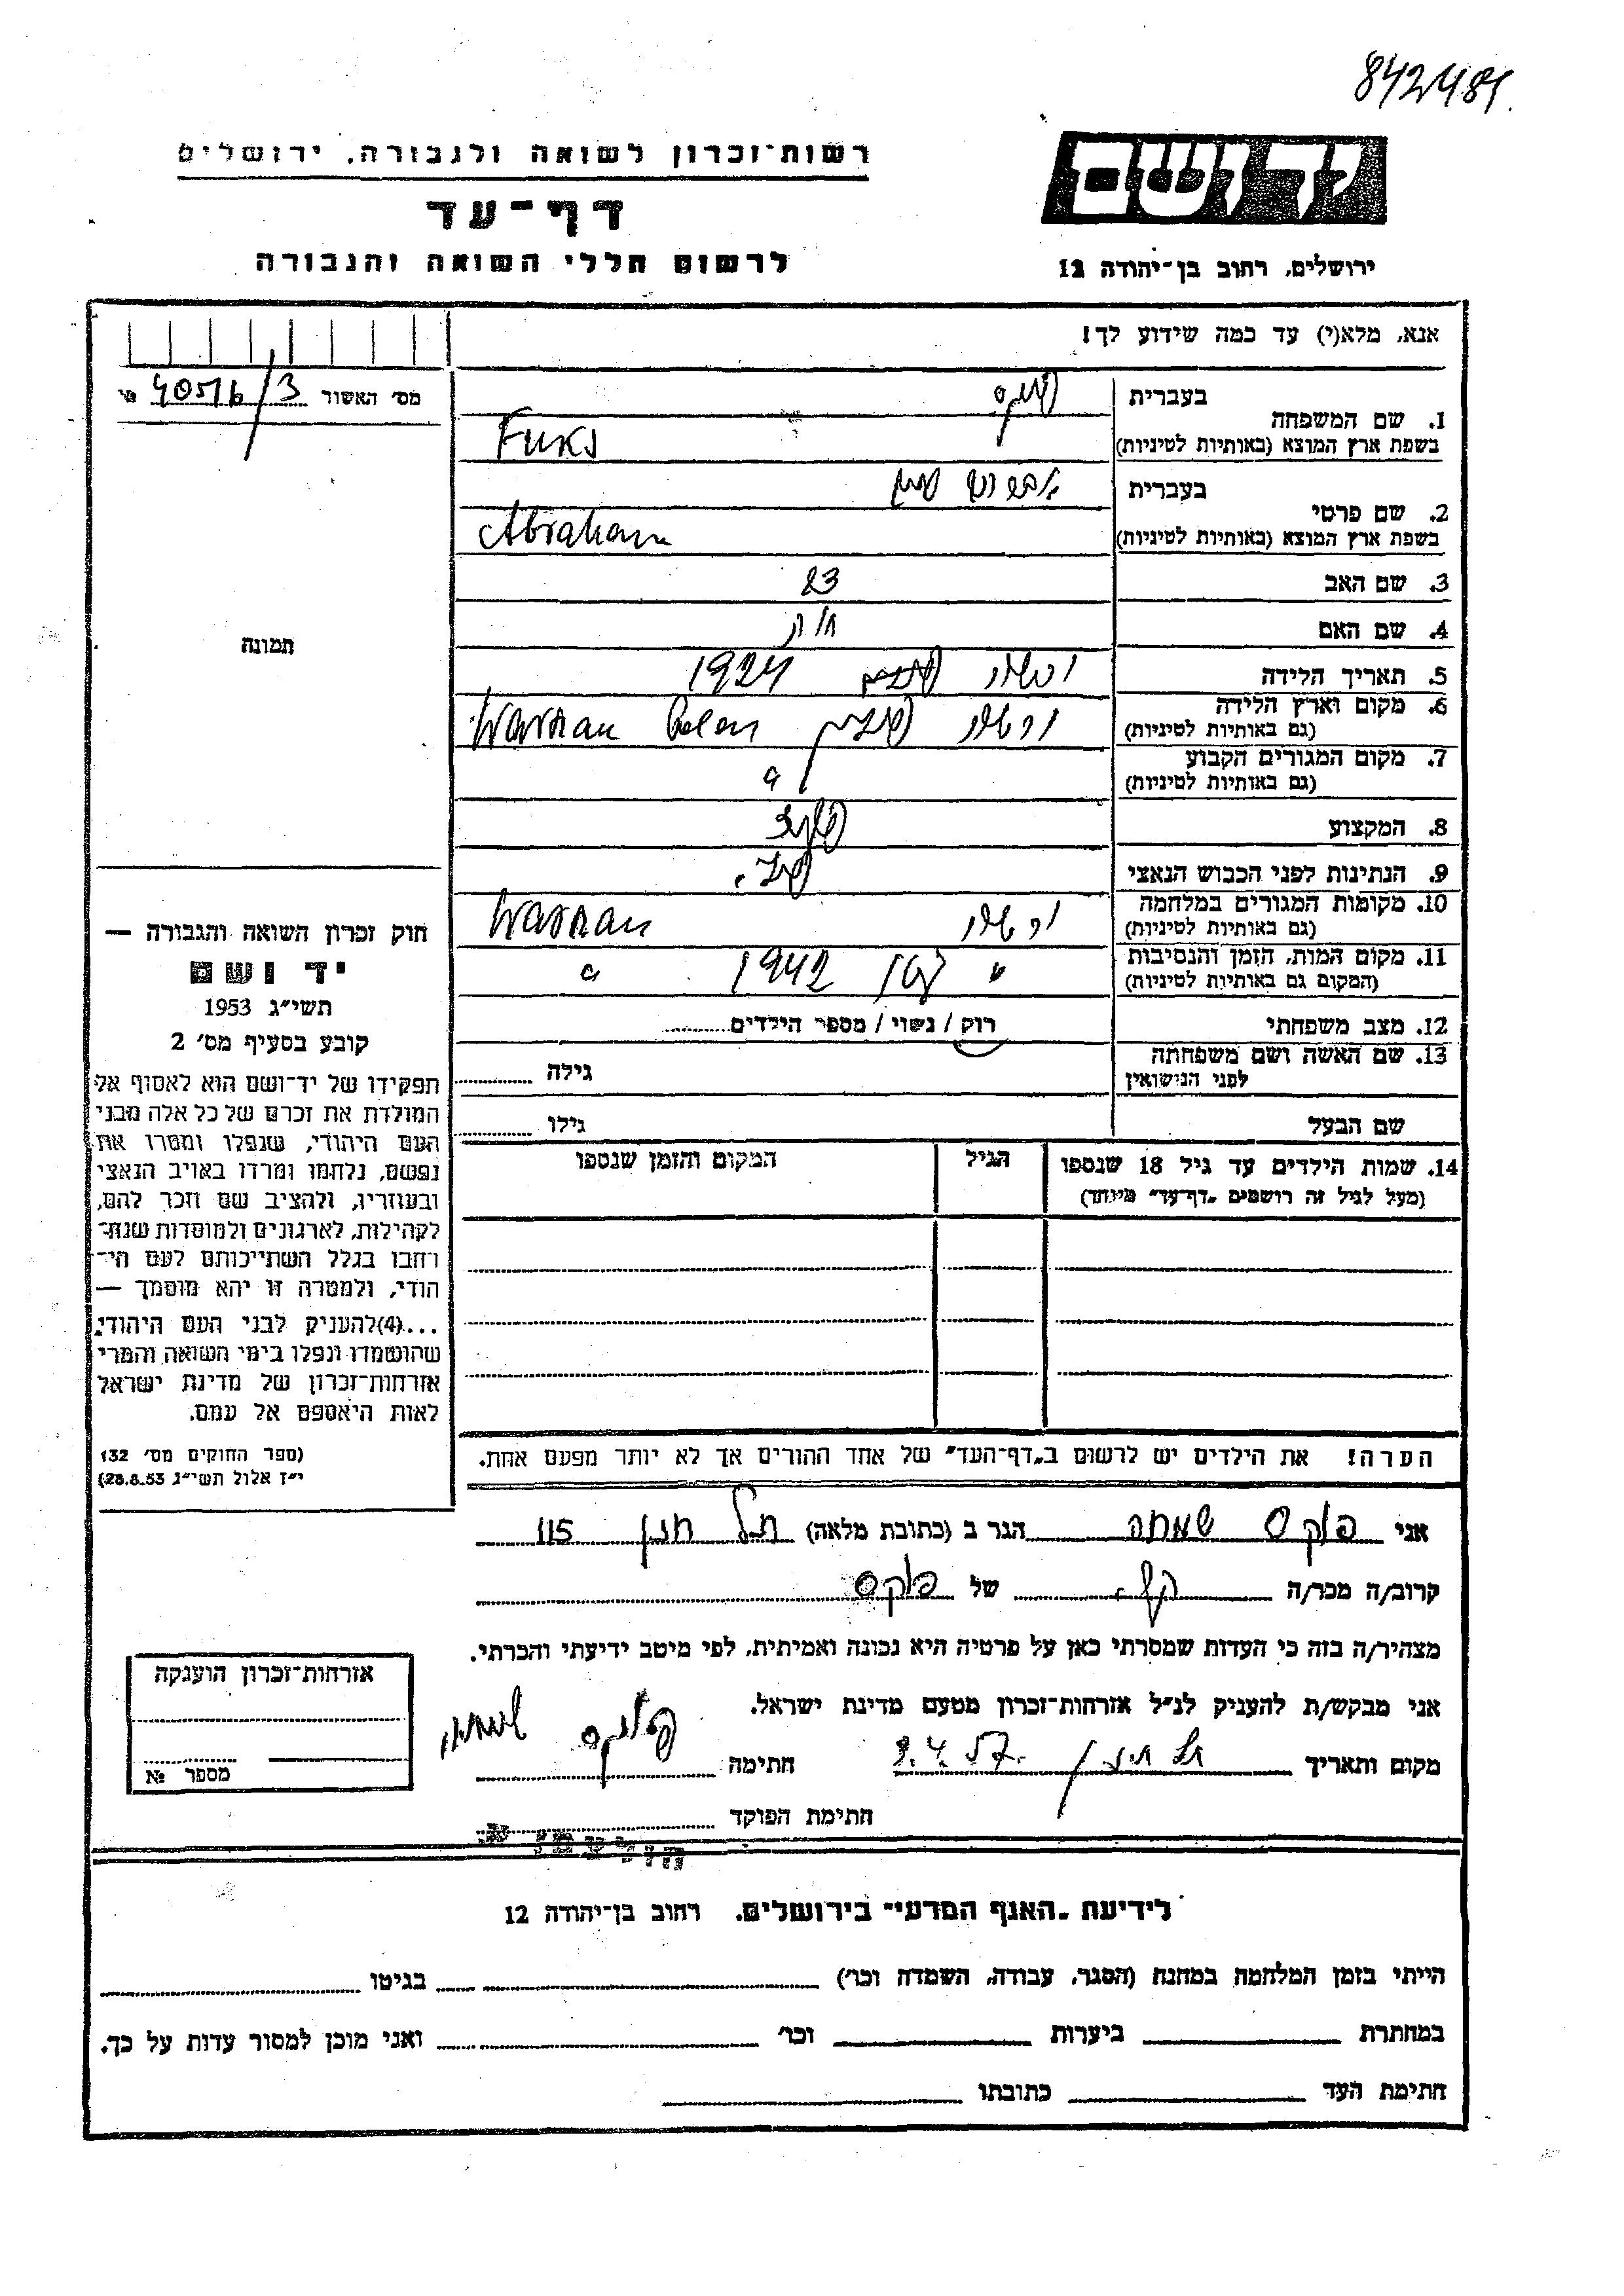 842481
רשות-זכרון לשואה ולגבורה, ירושלים
יד ושם
דף-עד
לרשום חללי השואה והגבורה
ירושלים, רחוב בן-יהודה 12
אנא, מלא(י) עד כמה שידוע לך!
מס' האשור 40516/3 №
1. שם המשפחה
בעברית פוקס
בשפת ארץ המוצא (באותיות לטיניות) Fuks
2. שם פרטי
בעברית
בשפת ארץ המוצא (באותיות לטיניות) Abraham
3. שם האב
4. שם האם
5. תאריך הלידה 1924
6. מקום וארץ הלידה
(גם באותיות לטיניות) ורשה פולין Warshau Polen
7. מקום המגורים הקבוע
(גם באותיות לטיניות) "
8. המקצוע
9. הנתינות לפני הכבוש הנאצי פול.
10. מקומות המגורים במלחמה
(גם באותיות לטיניות) Warshau
11. מקום המות, הזמן והנסיבות
(המקום גם באותיות לטיניות) " 1942 "
12. מצב משפחתי רוק / נשוי / מספר הילדים
13. שם האשה ושם משפחתה
לפני הנישואין גילה
שם הבעל גילו
14. שמות הילדים עד גיל 18 שנספו
(מעל לגיל זה רושמים "דף-עד" מיוחד)
הגיל
המקום והזמן שנספו
הערה! את הילדים יש לרשום ב"דף-העד" של אחד ההורים אך לא יותר מפעם אחת.
תמונה
חוק זכרון השואה והגבורה —
יד ושם
תשי"ג 1953
קובע בסעיף מס' 2
תפקידו של יד-ושם הוא לאסוף אל
המולדת את זכרם של כל אלה מבני
העם היהודי, שנפלו ומסרו את
נפשם, נלחמו ומרדו באויב הנאצי
ובעוזריו, ולהציב שם וזכר להם,
לקהילות, לארגונים ולמוסדות שנח-
רחבו בגלל השתייכותם לעם הי-
הודי, ולמטרה זו יהא מוסמך —
...(4)להעניק לבני העם היהודי,
שהושמדו ונפלו בימי השואה והמרי
אזרחות-זכרון של מדינת ישראל
לאות היאספם אל עמם.
(ספר החוקים מס' 132
י"ז אלול תשי"ג 28.8.53)
אני פוקס שמחה הגר ב (כתובת מלאה) תל חנן 115
קרוב/ה מכר/ה של פוקס
מצהיר/ה בזה כי העדות שמסרתי כאן על פרטיה היא נכונה ואמיתית, לפי מיטב ידיעתי והכרתי.
אני מבקש/ת להעניק לנ"ל אזרחות-זכרון מטעם מדינת ישראל.
מקום ותאריך תל חנן 9.4.57 חתימה פוקס שמחה
חתימת הפוקד
אזרחות-זכרון הוענקה
מספר №
לידיעת "האגף המדעי" בירושלים, רחוב בן-יהודה 12
הייתי בזמן המלחמה במחנה (הסגר, עבודה, השמדה וכו') בגיטו
במחתרת ביערות וכו' ואני מוכן למסור עדות על כך.
חתימת העד כתובתו